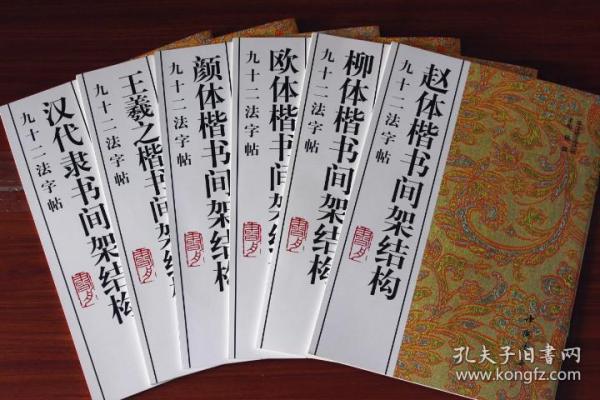 汉代隶书间架结构
九十二法字帖
王羲之楷书间架结
九十二法字帖
颜体楷书间架结构
九十二法字帖
欧体楷书间架结构
九十二法字帖
柳体楷书间架结构
九十二法字帖
赵体楷书间架结构
九十二法字帖
孔夫子旧书网
www.kongfz.com